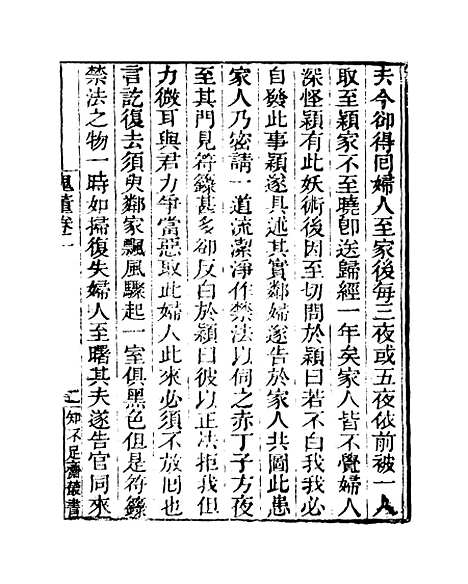 夫今卻得回婦人至家後每三夜或五夜依前被一人
取至穎家不至曉卽送歸經一年矣家人皆不覺婦人
深怪穎有此妖術後因至切問於穎曰若不白我我必
自發此事穎遂具述其實鄰婦遂告於家人共圖此患
家人乃密請一道流潔淨作禁法以伺之赤丁子方夜
至其門見符籙甚多卻反白於穎曰彼以正法拒我但
力微耳與君力爭當惡取此婦人此來必須不放回也
言訖復去須臾鄰家飄風驟起一室俱黑色但是符籙
禁法之物一時如掃復失婦人至曙其夫遂告官同來
鬼董卷一
二
知不足齋叢書